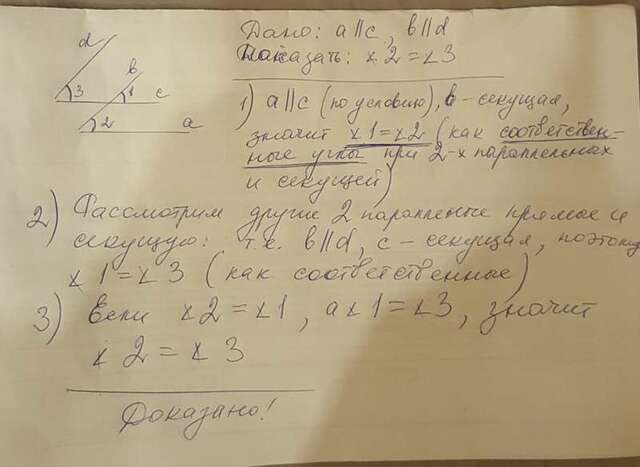 d
b
3
1
c
2
a
Дано: a||c, b||d
Доказать: ∠2=∠3
1) a||c (по условию), b - секущая,
значит ∠1=∠2 (как соответствен-
ные углы при 2-х параллельных
и секущей)
2) Рассмотрим другие 2 параллельные прямые и
секущую: т.е. b||d, c - секущая, поэтому
∠1=∠3 (как соответственные)
3) Если ∠2=∠1, а ∠1=∠3, значит
∠2=∠3
Доказано!